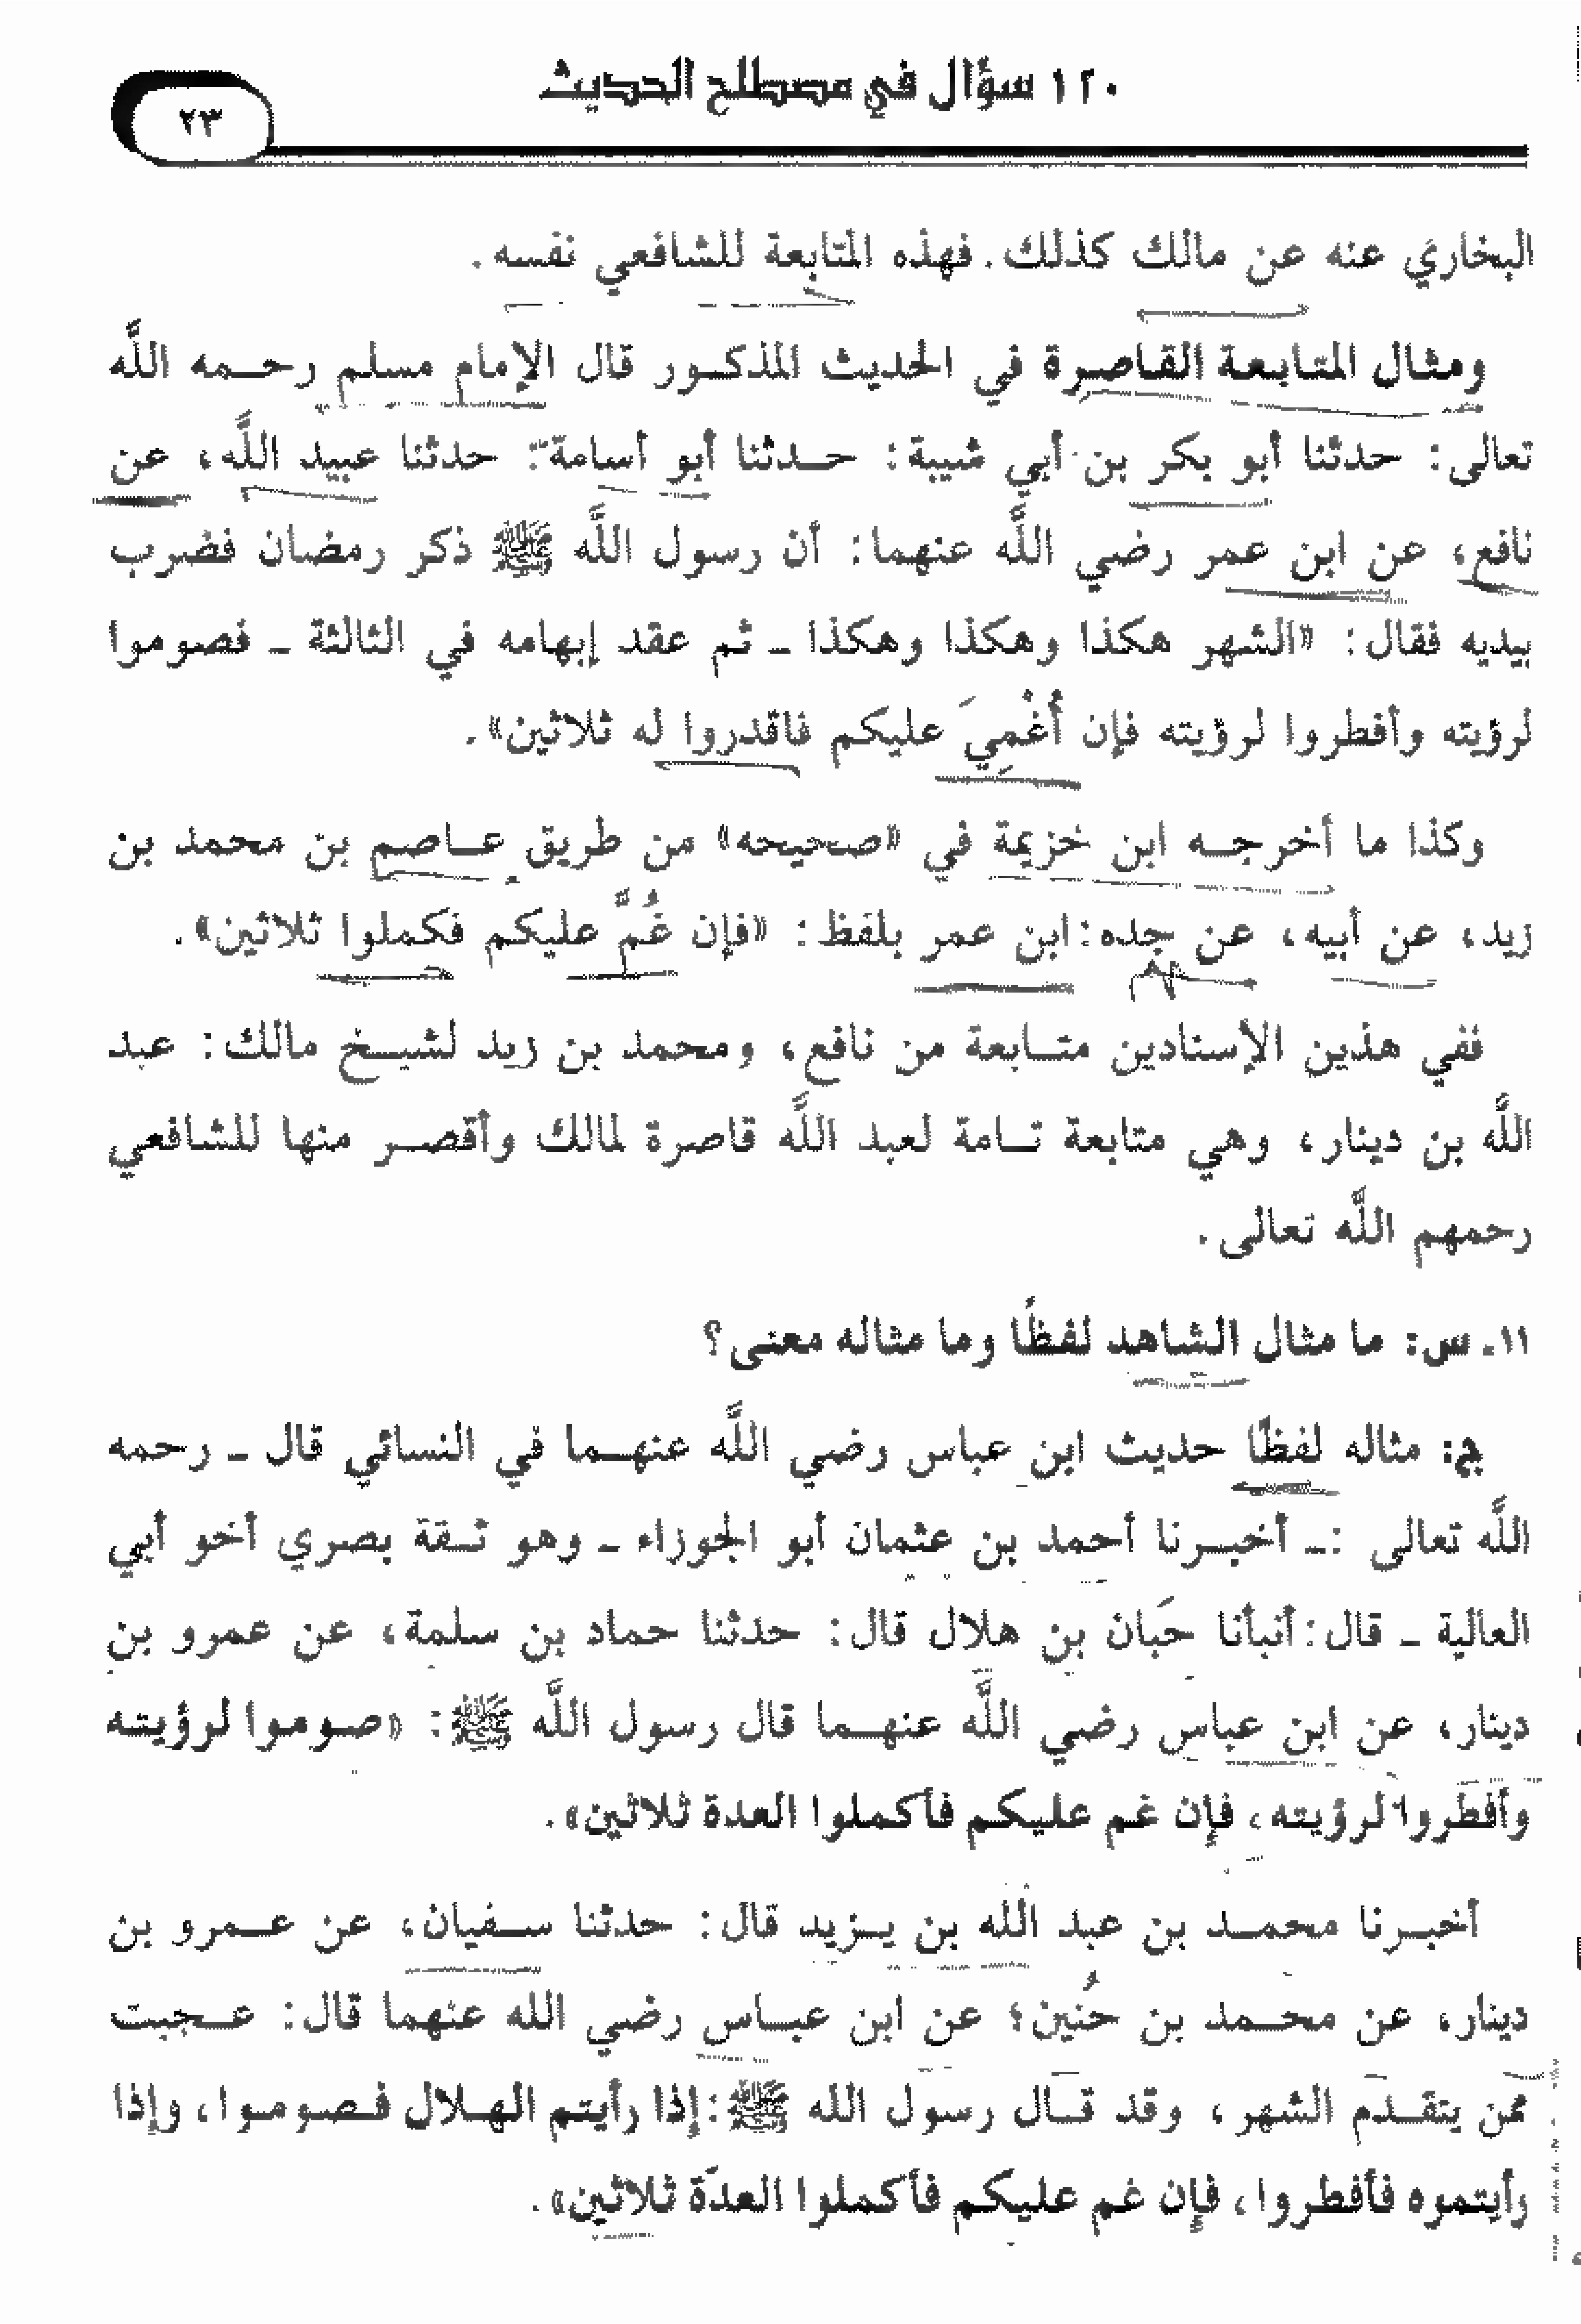 ١٢٠ سؤال في مصطلح الحديث
٢٣
البخاري عنه عن مالك كذلك. فهذه المتابعة للشافعي نفسه.
ومثال المتابعة القاصرة في الحديث المذكور قال الإمام مسلم رحمه اللَّه
تعالى: حدثنا أبو بكر بن أبي شيبة: حدثنا أبو أسامة: حدثنا عبيد اللَّه، عن
نافع، عن ابن عمر رضي اللَّه عنهما: أن رسول اللَّه ﷺ ذكر رمضان فضرب
بيديه فقال: «الشهر هكذا وهكذا وهكذا ـ ثم عقد إبهامه في الثالثة ـ فصوموا
لرؤيته وأفطروا لرؤيته فإن أُغْمِيَ عليكم فاقدروا له ثلاثين».
وكذا ما أخرجه ابن خزيمة في «صحيحه» من طريق عاصم بن محمد بن
زيد، عن أبيه، عن جده: ابن عمر بلفظ: «فإن غُمَّ عليكم فكملوا ثلاثين».
ففي هذين الإسنادين متابعة من نافع، ومحمد بن زيد لشيخ مالك: عبد
اللَّه بن دينار، وهي متابعة تامة لعبد اللَّه قاصرة لمالك وأقصر منها للشافعي
رحمهم اللَّه تعالى.
١١ـ س: ما مثال الشاهد لفظًا وما مثاله معنى؟
ج: مثاله لفظًا حديث ابن عباس رضي اللَّه عنهما في النسائي قال ـ رحمه
اللَّه تعالى :ـ أخبرنا أحمد بن عثمان أبو الجوزاء ـ وهو ثقة بصري أخو أبي
العالية ـ قال: أنبأنا حَبان بن هلال قال: حدثنا حماد بن سلمة، عن عمرو بن
دينار، عن ابن عباس رضي اللَّه عنهما قال رسول اللَّه ﷺ: «صوموا لرؤيته
وأفطروا لرؤيته، فإن غم عليكم فأكملوا العدة ثلاثين».
أخبرنا محمد بن عبد الله بن يزيد قال: حدثنا سفيان، عن عمرو بن
دينار، عن محمد بن حُنين؛ عن ابن عباس رضي الله عنهما قال: عجبت
ممن يتقدم الشهر، وقد قال رسول الله ﷺ: إذا رأيتم الهلال فصوموا، وإذا
وأيتموه فأفطروا، فإن غم عليكم فأكملوا العدّة ثلاثين».